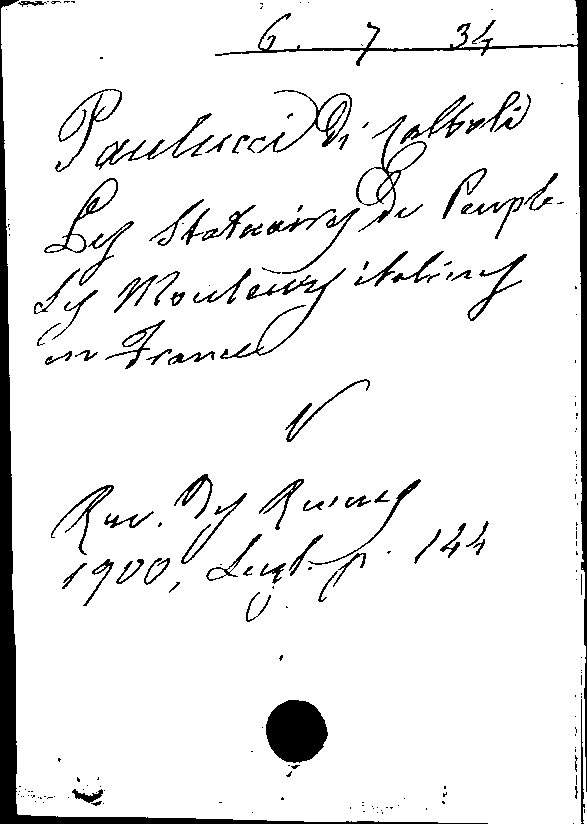 6. 7 34
Paulucci di Calboli
Les Statuaires du Peuple
Les Mouleurs italiens
en France
V
Rev. des Revues
1900, p. 144